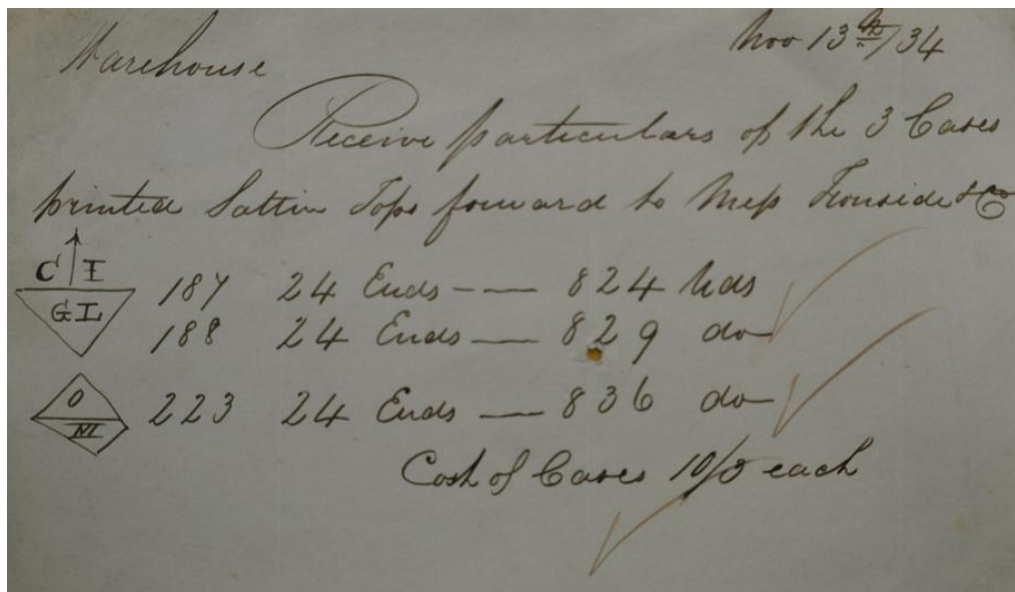 Warehouse Nov 13th/34
Receive particulars of the 3 Cases
printed Sattin Tops forward to Mess Ironside & Co
C I
GI 187 24 Ends - — 824 Yds
188 24 Ends — 829 do
O
NI 223 24 Ends — 836 do
Cost of Cases 10/0 each